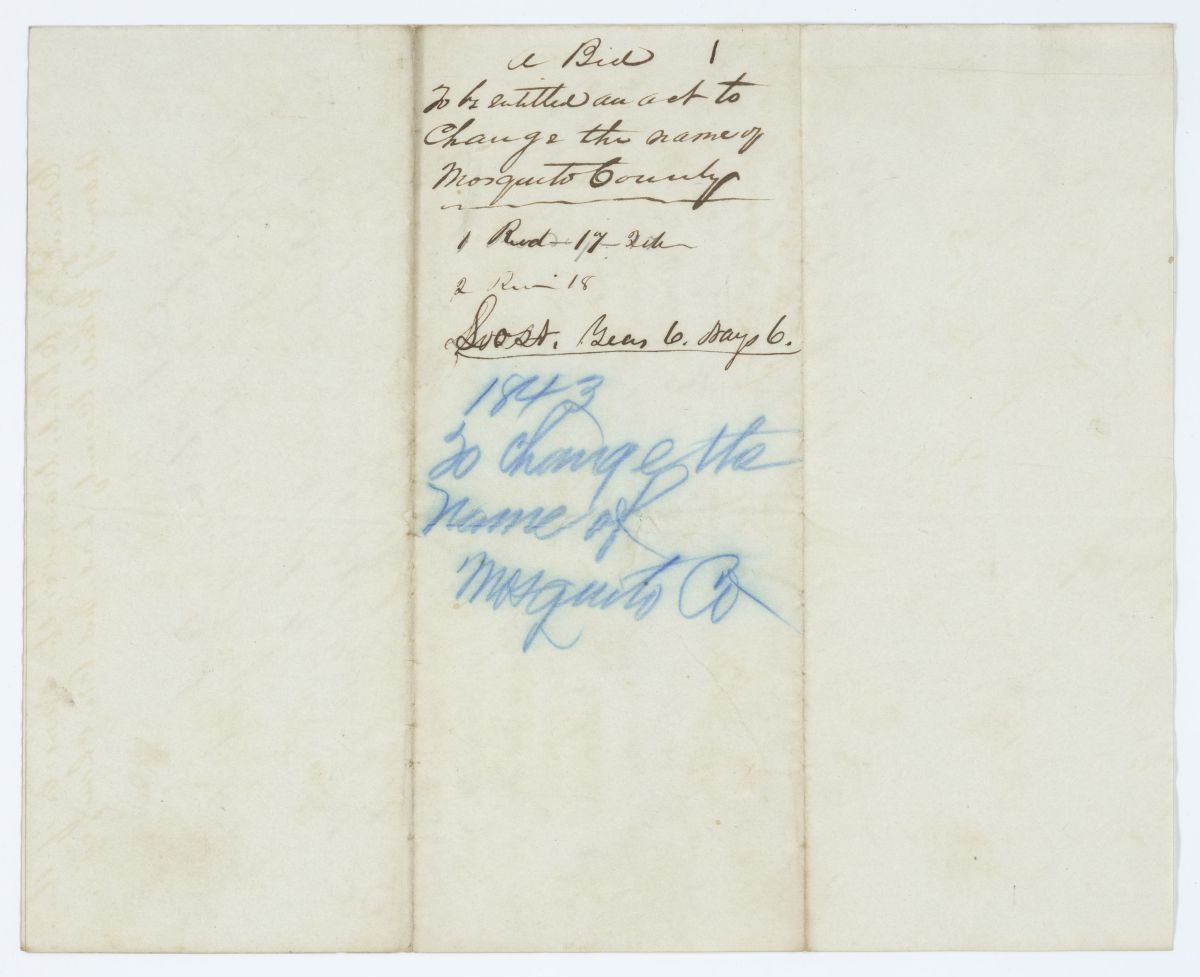 A Bill 1
To be entitled an act to
Change the name of
Mosquito County
1 Read 17 Feb
2 Read 18
Lost. Yeas 6. Nays 6.
1843
To Change the
Name of
Mosquito Co